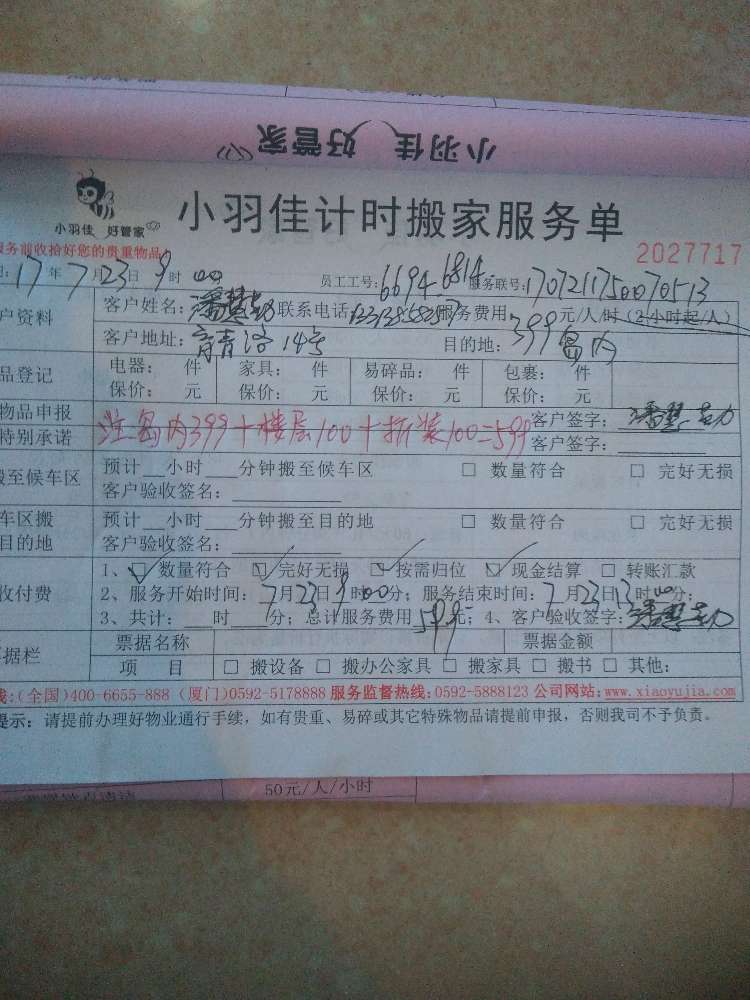 小羽佳 好管家
小羽佳 好管家
小羽佳计时搬家服务单
2027717
务前收拾好您的贵重物品!
17年7月23日9时00 员工工号:6694 6814 服务联号:1707211750070513
户资料 客户姓名: 联系电话 服务费用 元/人/时(2小时起/人)
客户地址: 育青路14号 目的地: 399岛内
品登记 电器: 件 家具: 件 易碎品: 件 包裹: 件
保价: 元 保价: 元 保价: 元 保价: 元
物品申报 客户签字:
特别承诺 注岛内399+楼层100+拆装100=599 客户签字:
搬至候车区 预计__小时___分钟搬至候车区 □ 数量符合 □ 完好无损
客户验收签名:
车区搬 预计__小时___分钟搬至目的地 □ 数量符合 □ 完好无损
目的地 客户验收签名:
收付费 1、☑ 数量符合 ☑ 完好无损 ☑ 按需归位 ☑ 现金结算 □ 转账汇款
2、服务开始时间: 7月23日9时00分; 服务结束时间: 7月23日13时00分;
3、共计:___时___分; 总计服务费用 元; 4、客户验收签字:
据栏 票据名称 票据金额
项 目 □ 搬设备 □ 搬办公家具 □ 搬家具 □ 搬书 □ 其他:
线:(全国)400-6655-888 (厦门)0592-5178888 服务监督热线:0592-5888123 公司网站:www.xiaoyujia.com
提示: 请提前办理好物业通行手续,如有贵重、易碎或其它特殊物品请提前申报,否则我司不予负责。
50元/人/小时